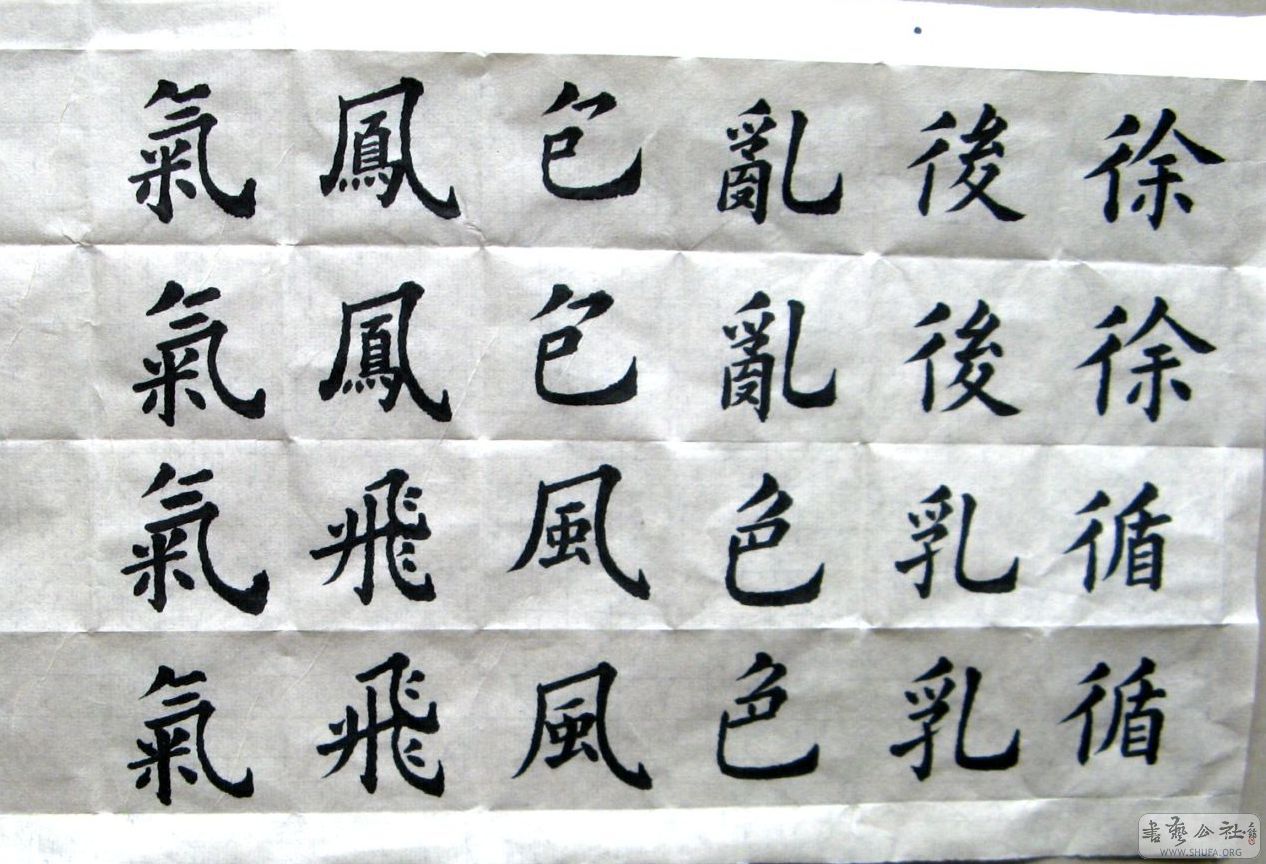 徐徐循循
後後乳乳
亂亂色色
包包風風
鳳鳳飛飛
氣氣氣氣
書藝公社
WWW.SHUFA.ORG